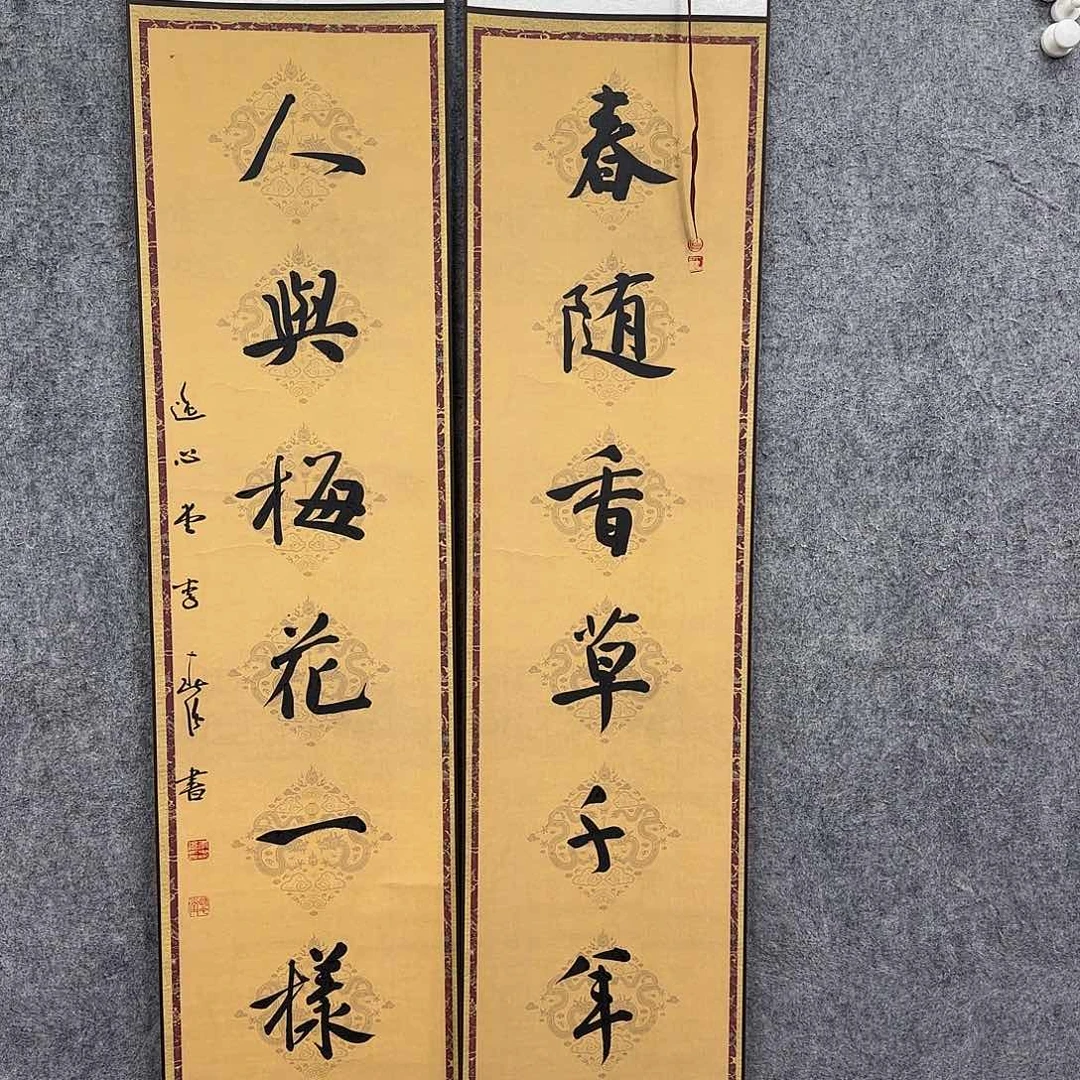 春随香草千年
人與梅花一樣
逸心堂李春河書